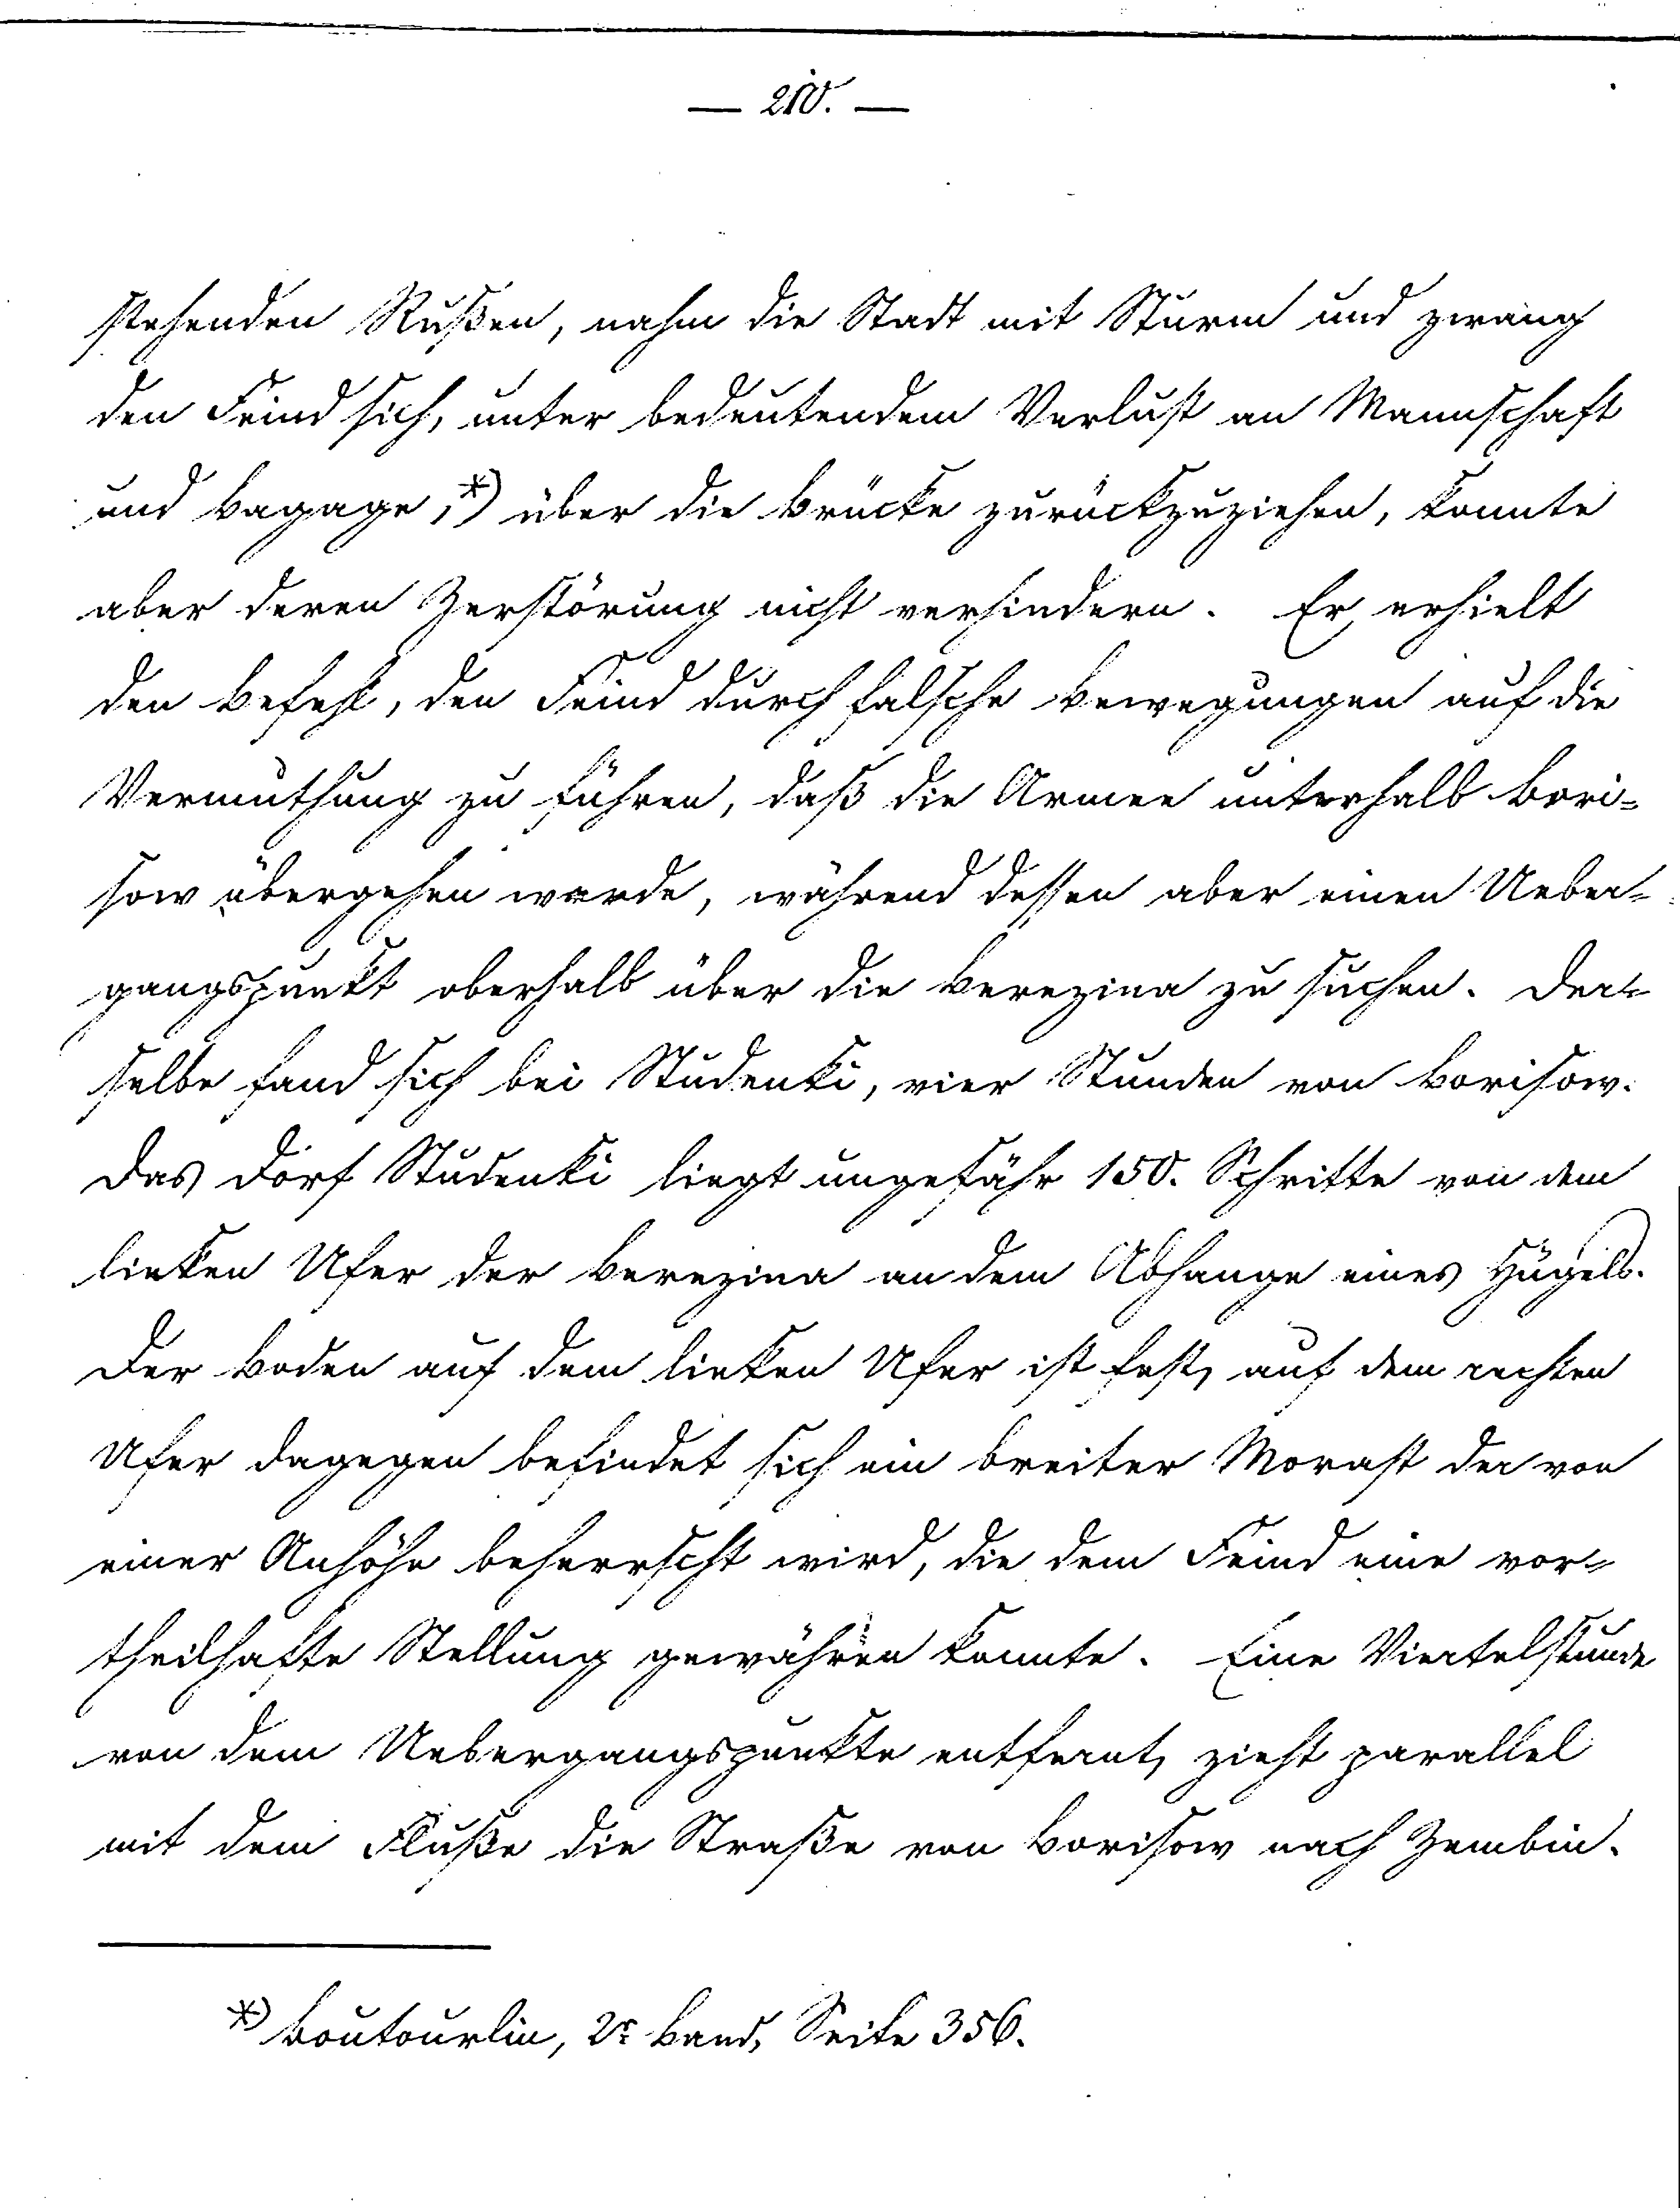 — 210. —
stehenden Rußen, nahm die Stadt mit Sturm und zwang
den Feind sich, unter bedeutendem Verlust an Mannschaft
und Bagage,*) über die Brücke zurückzuziehen, konnte
aber deren Zerstörung nicht verhindern. Er erhielt
den Befehl, den Feind durch falsche Bewegungen auf die
Vermuthung zu führen, daß die Armee unterhalb Bori-
sow übergehen werde, während dessen aber einen Ueber-
gangspunkt oberhalb über die Berezina zu suchen. Der-
selbe fand sich bei Studenki, vier Stunden von Borisow.
Das Dorf Studenki liegt ungefähr 150. Schritte von dem
linken Ufer der Berezina an dem Abhange eines Hügels.
Der Boden auf dem linken Ufer ist fest, auf dem rechten
Ufer dagegen befindet sich ein breiter Morast der von
einer Anhöhe beherrscht wird, die dem Feind eine vor-
theilhafte Stellung gewähren konnte. Eine Viertelstunde
von dem Uebergangspunkte entfernt, zieht parallel
mit dem Fluße die Straße von Borisow nach Zembin.
*) Boutourlin, 2r Band, Seite 356.